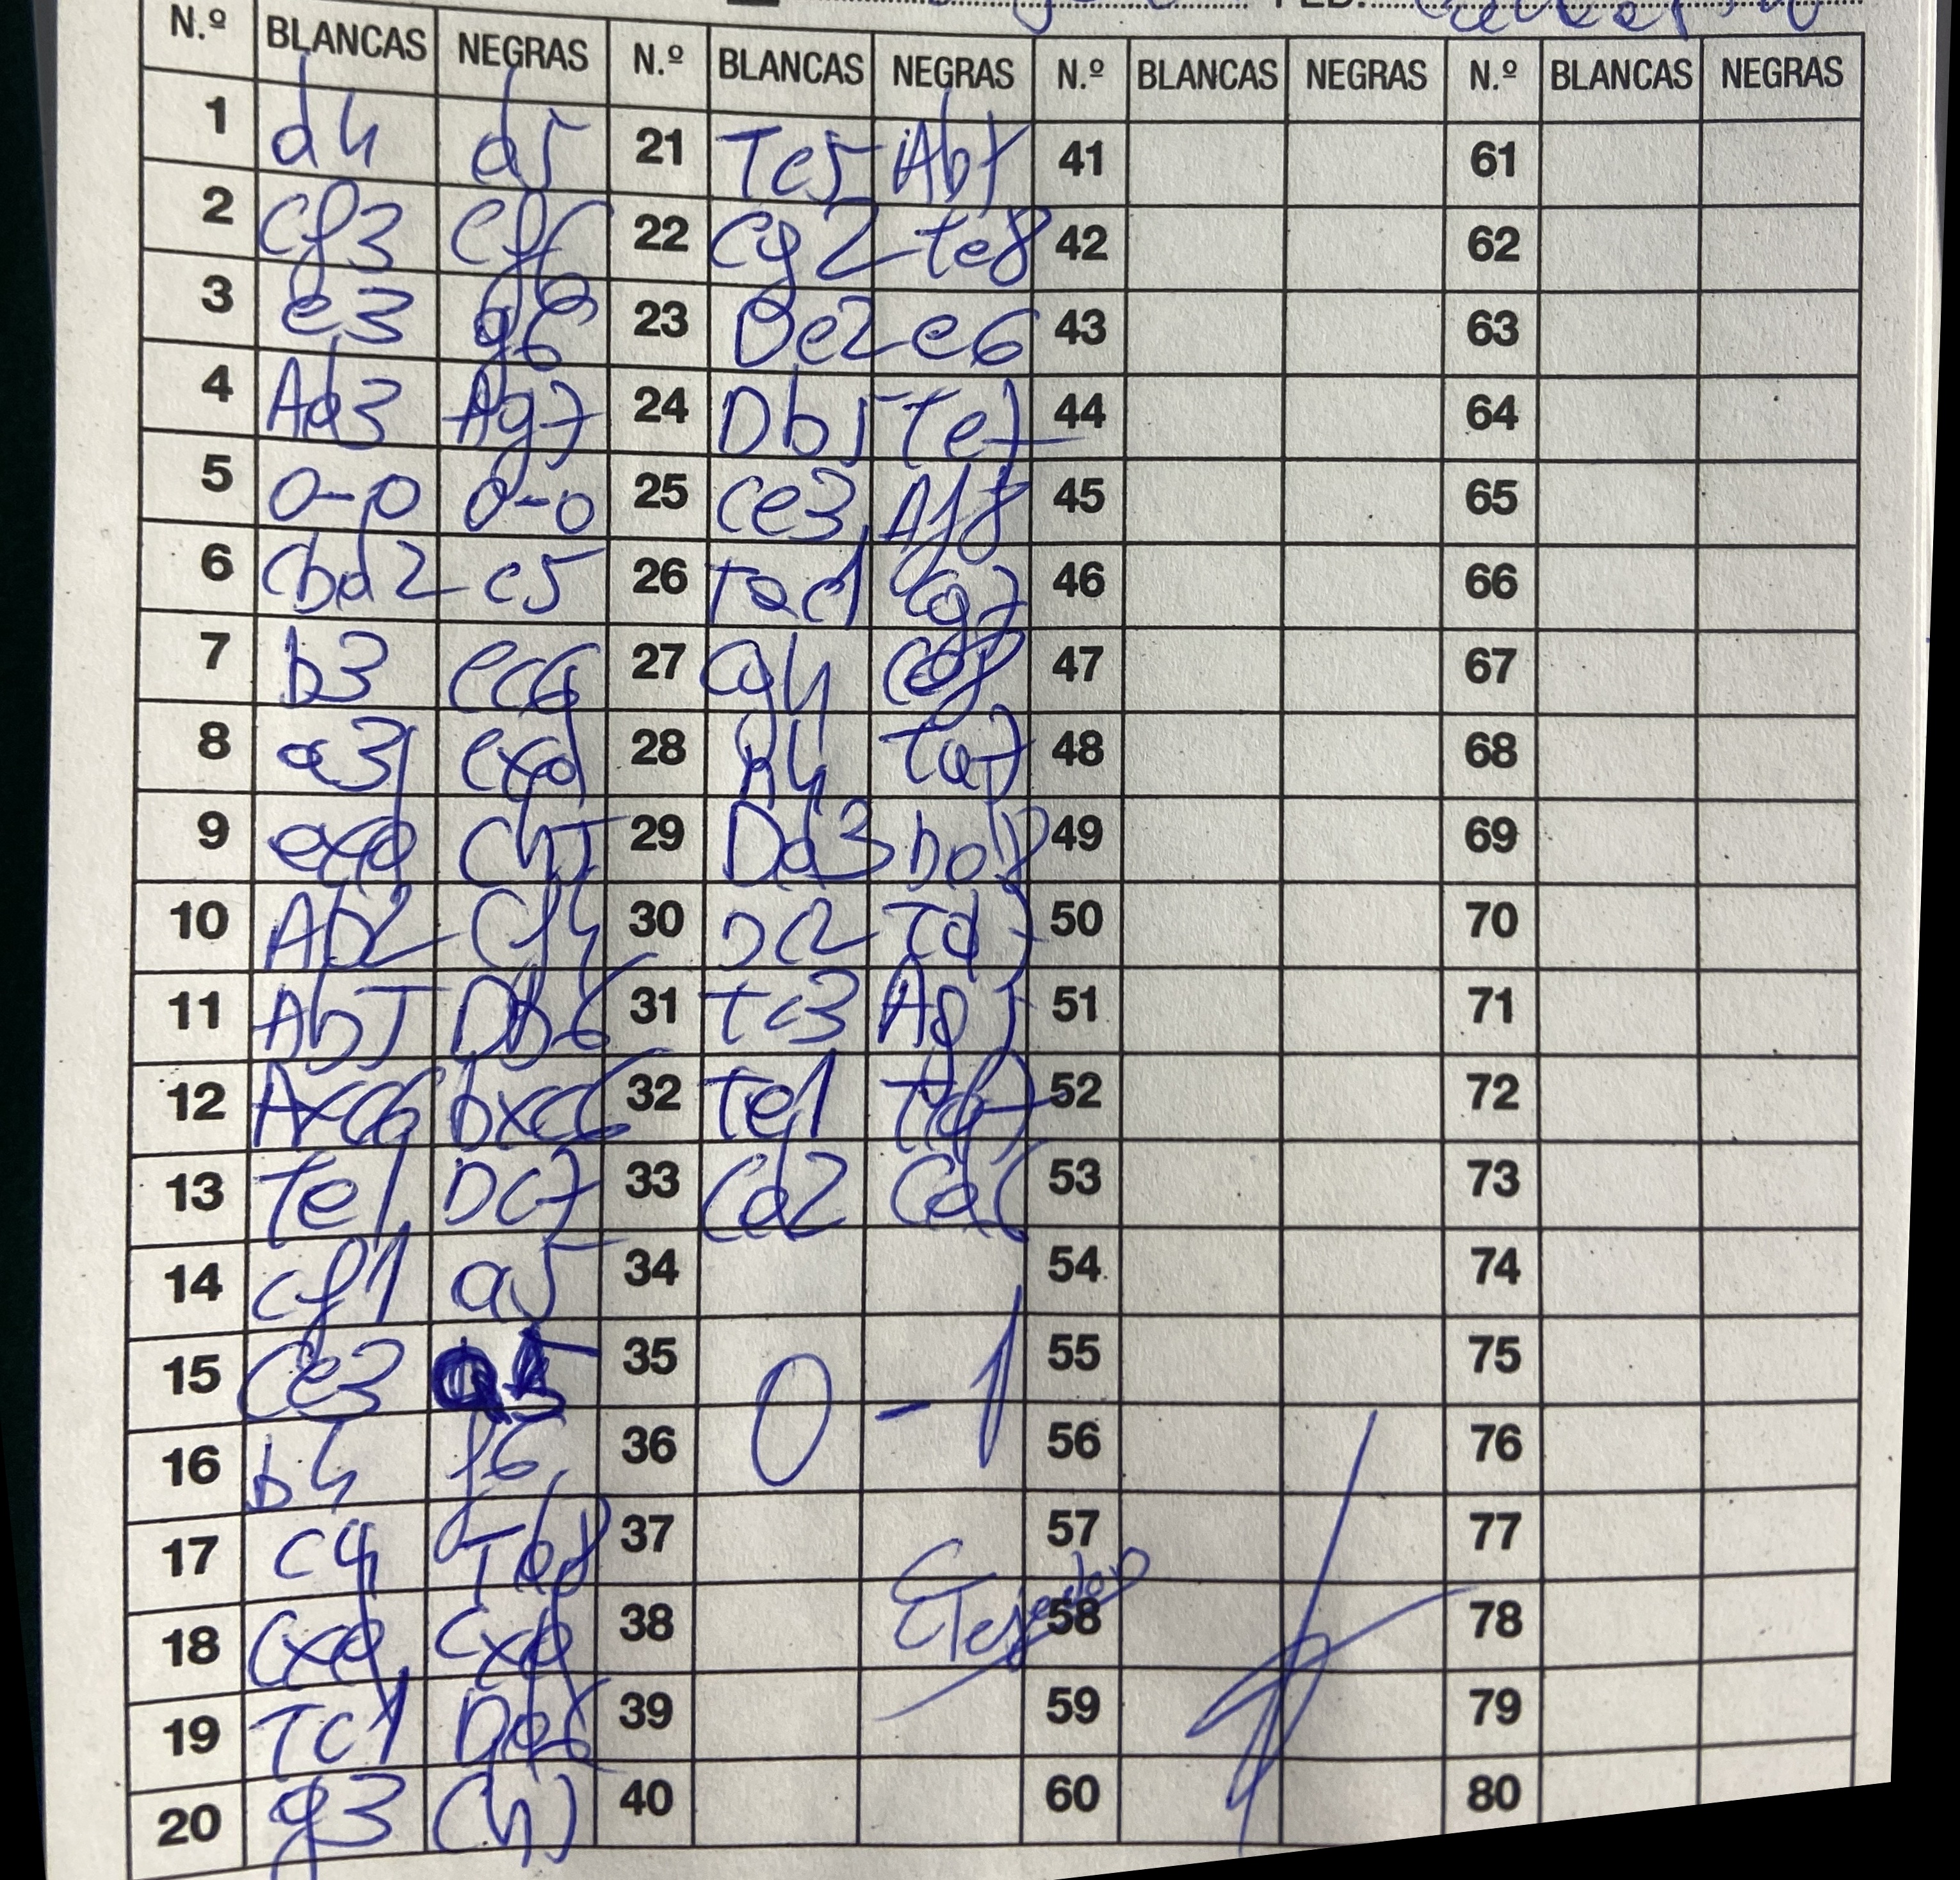 N.º BLANCAS NEGRAS N.º BLANCAS NEGRAS N.º BLANCAS NEGRAS N.º BLANCAS NEGRAS
1 d4 d5 21 Tc5 Ab7 41 61
2 Cf3 Cf6 22 Cg2 Te8 42 62
3 e3 g6 23 De2 e6 43 63
4 Ad3 Ag7 24 Db5 Te7 44 64
5 0-0 0-0 25 Ce3 Af8 45 65
6 Cbd2 c5 26 Tac1 Cg7 46 66
7 b3 Cc6 27 Cg4 47 67
8 a3 cxd 28 h4 Ta7 48 68
9 exd Ch5 29 Dd3 49 69
10 Ab2 Cf4 30 Dc2 Td7 50 70
11 Ab5 Db6 31 Tc3 51 71
12 Axc6 bxc6 32 Te1 52 72
13 Te1 Dc7 33 Cd2 53 73
14 Cf1 a5 34 54 74
15 Ce3 35 0-1 55 75
16 b4 f6 36 56 76
17 c4 Tb8 37 57 77
18 cxd cxd 38 58 78
19 Tc1 Dd6 39 59 79
20 g3 Ch5 40 60 80